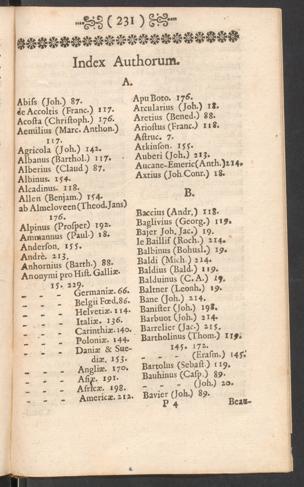 ( 231 )
Index Authorum.
A.
Abiss (Joh.) 87.
de Accoltis (Franc.) 117.
Acosta (Christoph.) 176.
Aemilius (Marc. Anthon.)
117.
Agricola (Joh.) 142.
Albanus (Barthol.) 117.
Alberius (Claud) 87.
Albinus. 154.
Alcadinus. 118.
Allen (Benjam.) 154.
ab Almeloveen (Theod. Jans)
176.
Alpinus (Prosper) 192.
Ammannus (Paul.) 18.
Anderson, 155.
Andrè. 213.
Anhornius (Barth.) 88.
Anonymi pro Hist. Galliæ.
15. 229.
- - - Germaniæ. 66.
- - - Belgii Fœd. 86.
- - - Helvetiæ. 114.
- - - Italiæ. 136.
- - - Carinthiæ. 140.
- - - Poloniæ. 144.
- - - Daniæ & Sue-
diæ. 153.
- - - Angliæ. 170.
- - - Asiæ. 191.
- - - Africæ. 198.
- - - Americæ. 212.
Apu Boto. 176.
Arcularius (Joh.) 18.
Aretius (Bened.) 88.
Ariostus (Franc.) 118.
Astruc. 7.
Atkinson. 155.
Auberi (Joh.) 213.
Aucane-Emeric (Anth.) 214.
Axtius (Joh. Conr.) 18.
B.
Baccius (Andr.) 118.
Baglivius (Georg.) 119.
Bajer Joh. Jac.) 19.
le Baillif (Roch.) 214.
Balbinus (Bohusl.) 19.
Baldi (Mich.) 214.
Baldius (Bald.) 119.
Balduinus (C. A.) 19.
Baltner (Leonh.) 19.
Bane (Joh.) 214.
Banister (Joh.) 198.
Barbuot (Joh.) 214.
Barrelier (Jac.) 215.
Bartholinus (Thom.) 119.
145. 172.
- - - (Erasm.) 145.
Bartolus (Sebast.) 119.
Bauhinus (Casp.) 89.
- - - (Joh.) 20.
Bavier (Joh.) 89.
P 4 Beau-